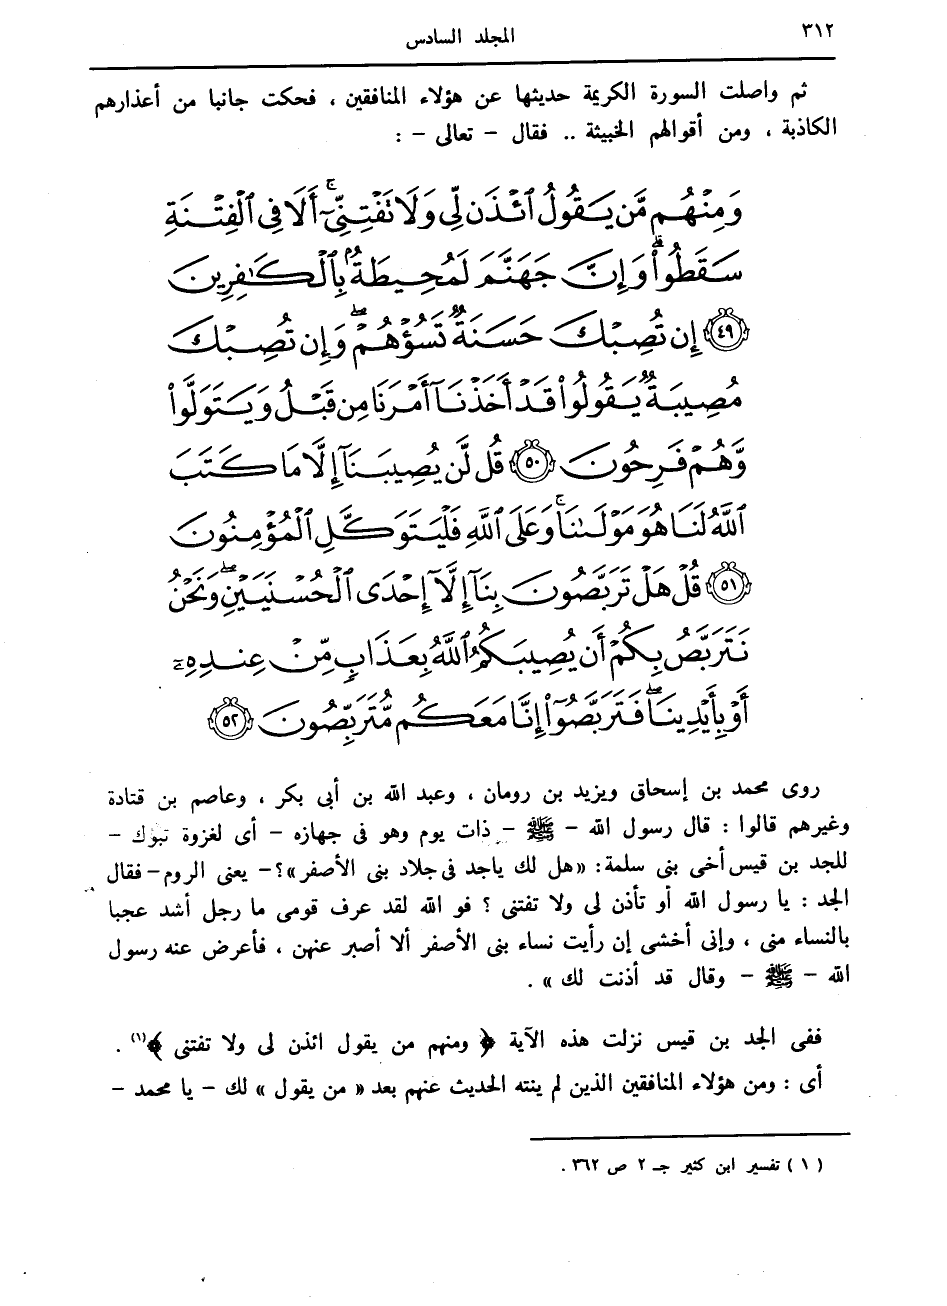 ٣١٢
المجلد السادس
ثم واصلت السورة الكريمة حديثها عن هؤلاء المنافقين ، فحكت جانبا من أعذارهم
الكاذبة ، ومن أقوالهم الخبيثة .. فقال – تعالى – :
وَمِنْهُم مَّن يَقُولُ ٱئْذَن لِّي وَلَا تَفْتِنِّيٓ ۚ أَلَا فِي ٱلْفِتْنَةِ
سَقَطُوا۟ ۗ وَإِنَّ جَهَنَّمَ لَمُحِيطَةٌۢ بِٱلْكَٰفِرِينَ
﴿٤٩﴾ إِن تُصِبْكَ حَسَنَةٌ تَسُؤْهُمْ ۖ وَإِن تُصِبْكَ
مُصِيبَةٌ يَقُولُوا۟ قَدْ أَخَذْنَآ أَمْرَنَا مِن قَبْلُ وَيَتَوَلَّوا۟
وَّهُمْ فَرِحُونَ ﴿٥٠﴾ قُل لَّن يُصِيبَنَآ إِلَّا مَا كَتَبَ
ٱللَّهُ لَنَا هُوَ مَوْلَىٰنَا ۚ وَعَلَى ٱللَّهِ فَلْيَتَوَكَّلِ ٱلْمُؤْمِنُونَ
﴿٥١﴾ قُلْ هَلْ تَرَبَّصُونَ بِنَآ إِلَّآ إِحْدَى ٱلْحُسْنَيَيْنِ ۖ وَنَحْنُ
نَتَرَبَّصُ بِكُمْ أَن يُصِيبَكُمُ ٱللَّهُ بِعَذَابٍ مِّنْ عِندِهِۦٓ
أَوْ بِأَيْدِينَا ۖ فَتَرَبَّصُوٓا۟ إِنَّا مَعَكُم مُّتَرَبِّصُونَ ﴿٥٢﴾
روى محمد بن إسحاق ويزيد بن رومان ، وعبد الله بن أبى بكر ، وعاصم بن قتادة
وغيرهم قالوا : قال رسول الله – ﷺ – ذات يوم وهو فى جهازه – أى لغزوة تبوك –
للجد بن قيس أخى بنى سلمة : «هل لك ياجد فى جلاد بنى الأصفر»؟– يعنى الروم – فقال
الجد : يا رسول الله أو تأذن لى ولا تفتنى ؟ فو الله لقد عرف قومى ما رجل أشد عجبا
بالنساء منى ، وإنى أخشى إن رأيت نساء بنى الأصفر ألا أصبر عنهن ، فأعرض عنه رسول
الله – ﷺ – وقال قد أذنت لك » .
ففى الجد بن قيس نزلت هذه الآية ﴿ ومنهم من يقول ائذن لى ولا تفتنى ﴾(١) .
أى : ومن هؤلاء المنافقين الذين لم ينته الحديث عنهم بعد « من يقول » لك – يا محمد –
( ١ ) تفسير ابن كثير جـ ٢ ص ٣٦٢ .